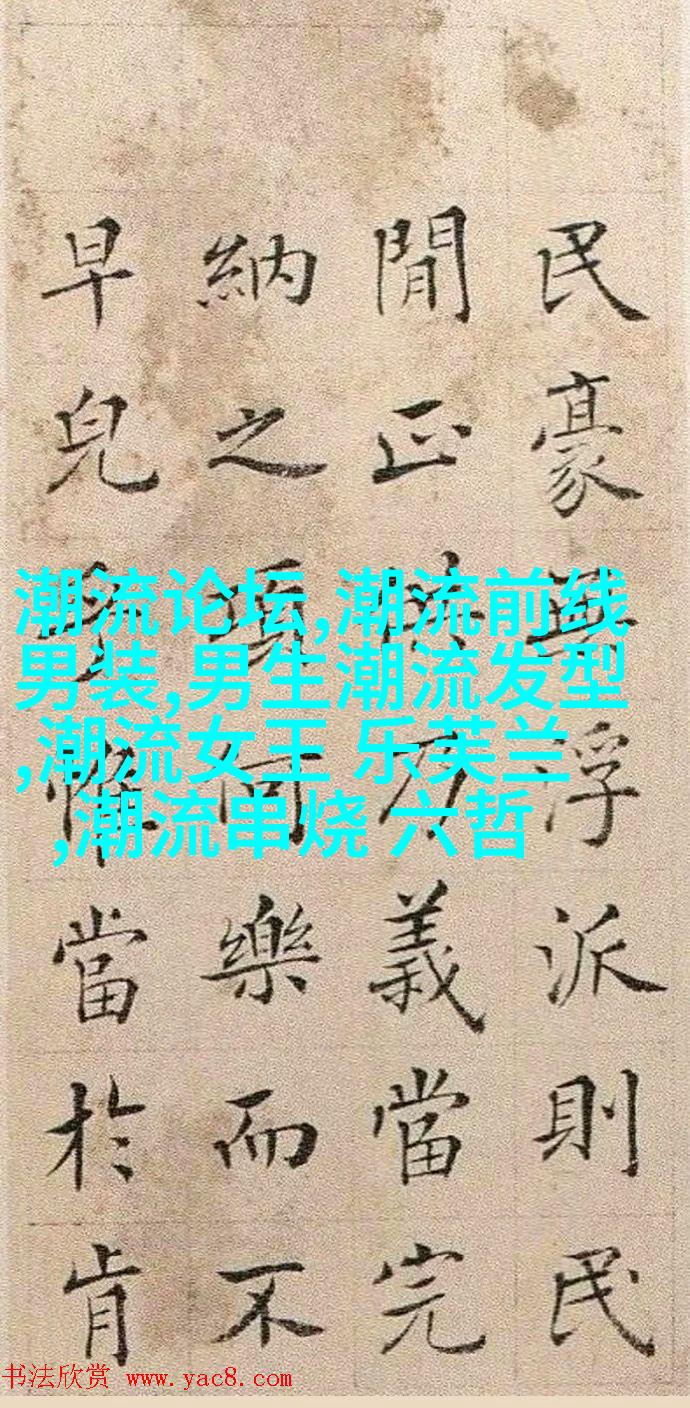 民豪無浮派則民
閒正乃義當完
納之項何樂而不
早當於肯
潮流论坛,潮流前线
男装,男生潮流发型
,潮流女王 乐芙兰
,潮流串烧 六哲
书法欣赏 www.yac8.com